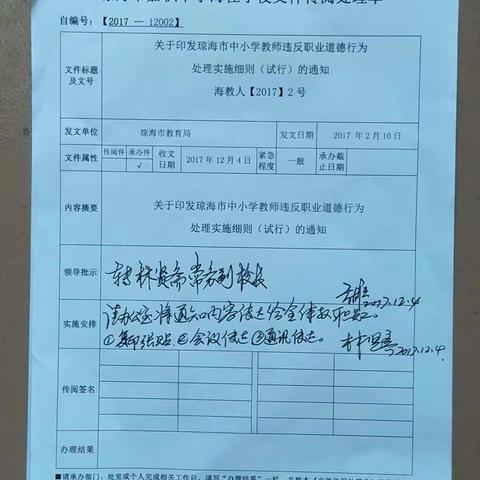 自编号：【2017 — 12002】
文件标题及文号
关于印发琼海市中小学教师违反职业道德行为
处理实施细则（试行）的通知
海教人【2017】2号
发文单位 琼海市教育局 发文日期 2017 年 2 月 10 日
文件属性 传阅件 承办件 √ 收文日期 2017 年 12 月 4 日 紧急程度 一般 承办截止日期
内容摘要
关于印发琼海市中小学教师违反职业道德行为
处理实施细则（试行）的通知
领导批示
转林贤斋常务副校长
2017.12.4
实施安排
请办公室将通知内容传达给全体教职员工。
①复印张贴 ②会议传达 ③通讯传达。
2017.12.4.
传阅签名
办理结果
■请承办部门、处室或个人完成相关工作后，填写“办理结果”一栏，